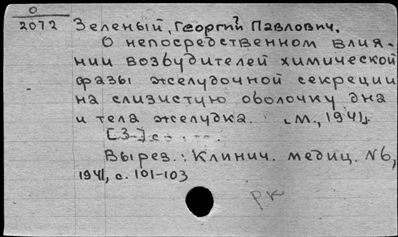 0
2072 Зеленый, Георгий Павлович.
О непосредственном влия-
нии возбудителей химической
фазы желудочной секреции
на слизистую оболочку дна
и тела желудка. [М., 1941]
[3-] с
Вырез.: Клинич. медиц. №6,
1941, с. 101-103
РК